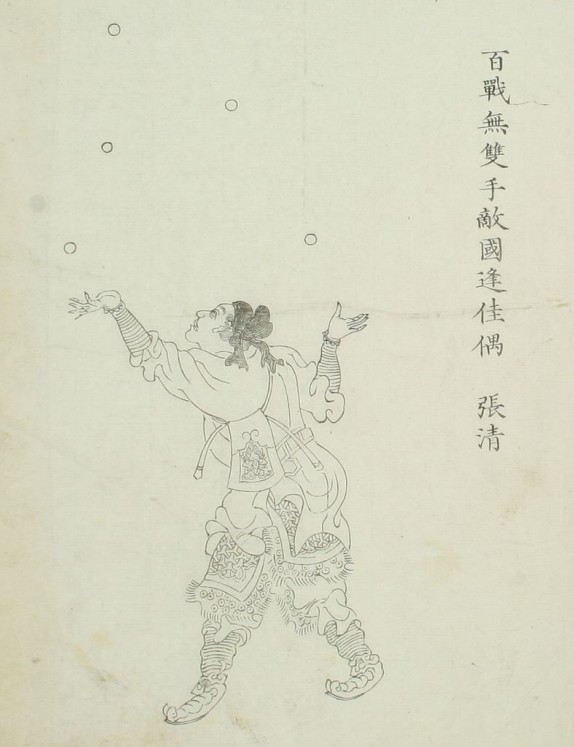 百戰無雙手敵國逢佳偶 張清